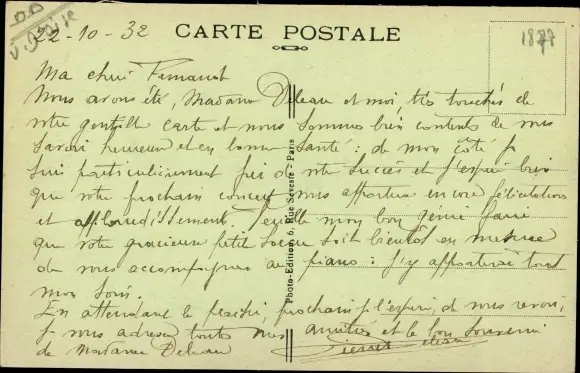 22-10-32
CARTE POSTALE
Ma chère
Nous avons été, Madame Deleau et moi, très touchés de
votre gentille carte et nous sommes bien contents de vous
savoir heureux et en bonne santé : de mon côté je
suis particulièrement fier de votre succès et j'espère bien
que votre prochain concert vous apportera encore félicitations
et applaudissement. mon bon génie faire
que votre gracieuse petite soit bientôt en mesure
de vous accompagner au piano : j'y apporterai tout
mon soin.
En attendant le plaisir, prochain j'espère, de vous revoir,
je vous adresse toutes mes amitiés et le bon souvenir
de Madame Deleau
Photo-Edition, 6, Rue Seveste - Paris